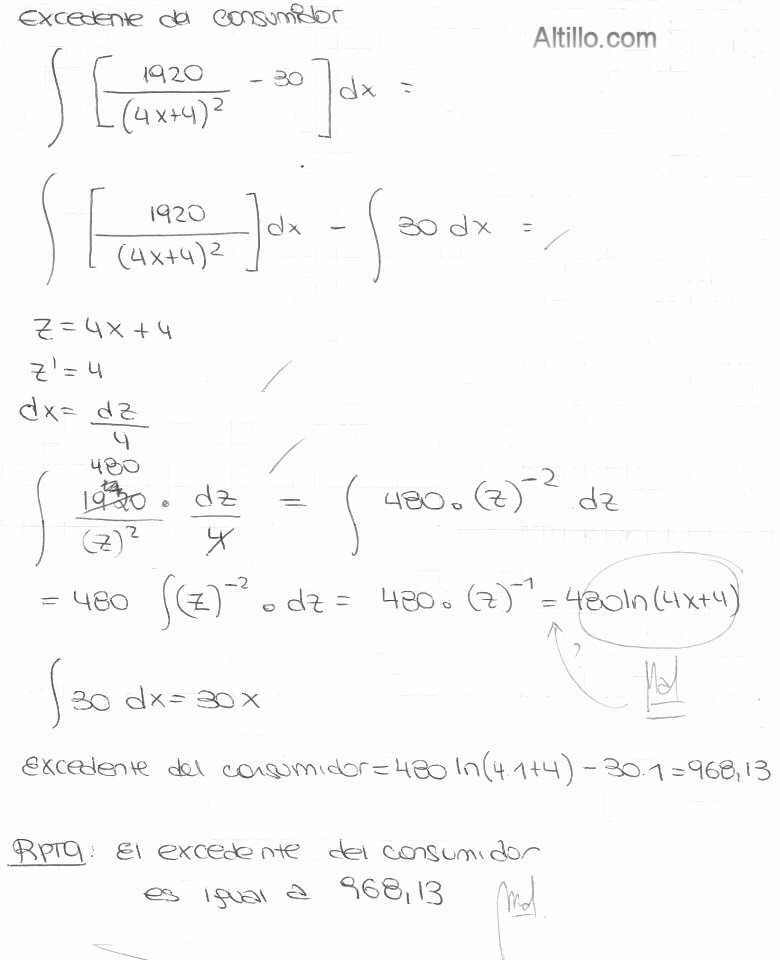 Excedente del consumidor
Altillo.com
∫ [ 1920 / (4x+4)² - 30 ] dx =
∫ [ 1920 / (4x+4)² ] dx - ∫ 30 dx =
z = 4x + 4
z' = 4
dx = dz / 4
480
∫ 1920 / (z)² . dz / 4 = ∫ 480 . (z)⁻² dz
= 480 ∫ (z)⁻² . dz = 480 . (z)⁻¹ = 480 ln (4x+4)
?
Mal
∫ 30 dx = 30x
Excedente del consumidor = 480 ln (4.1+4) - 30.1 = 968,13
Rpta: El excedente del consumidor
es igual a 968,13
Mal